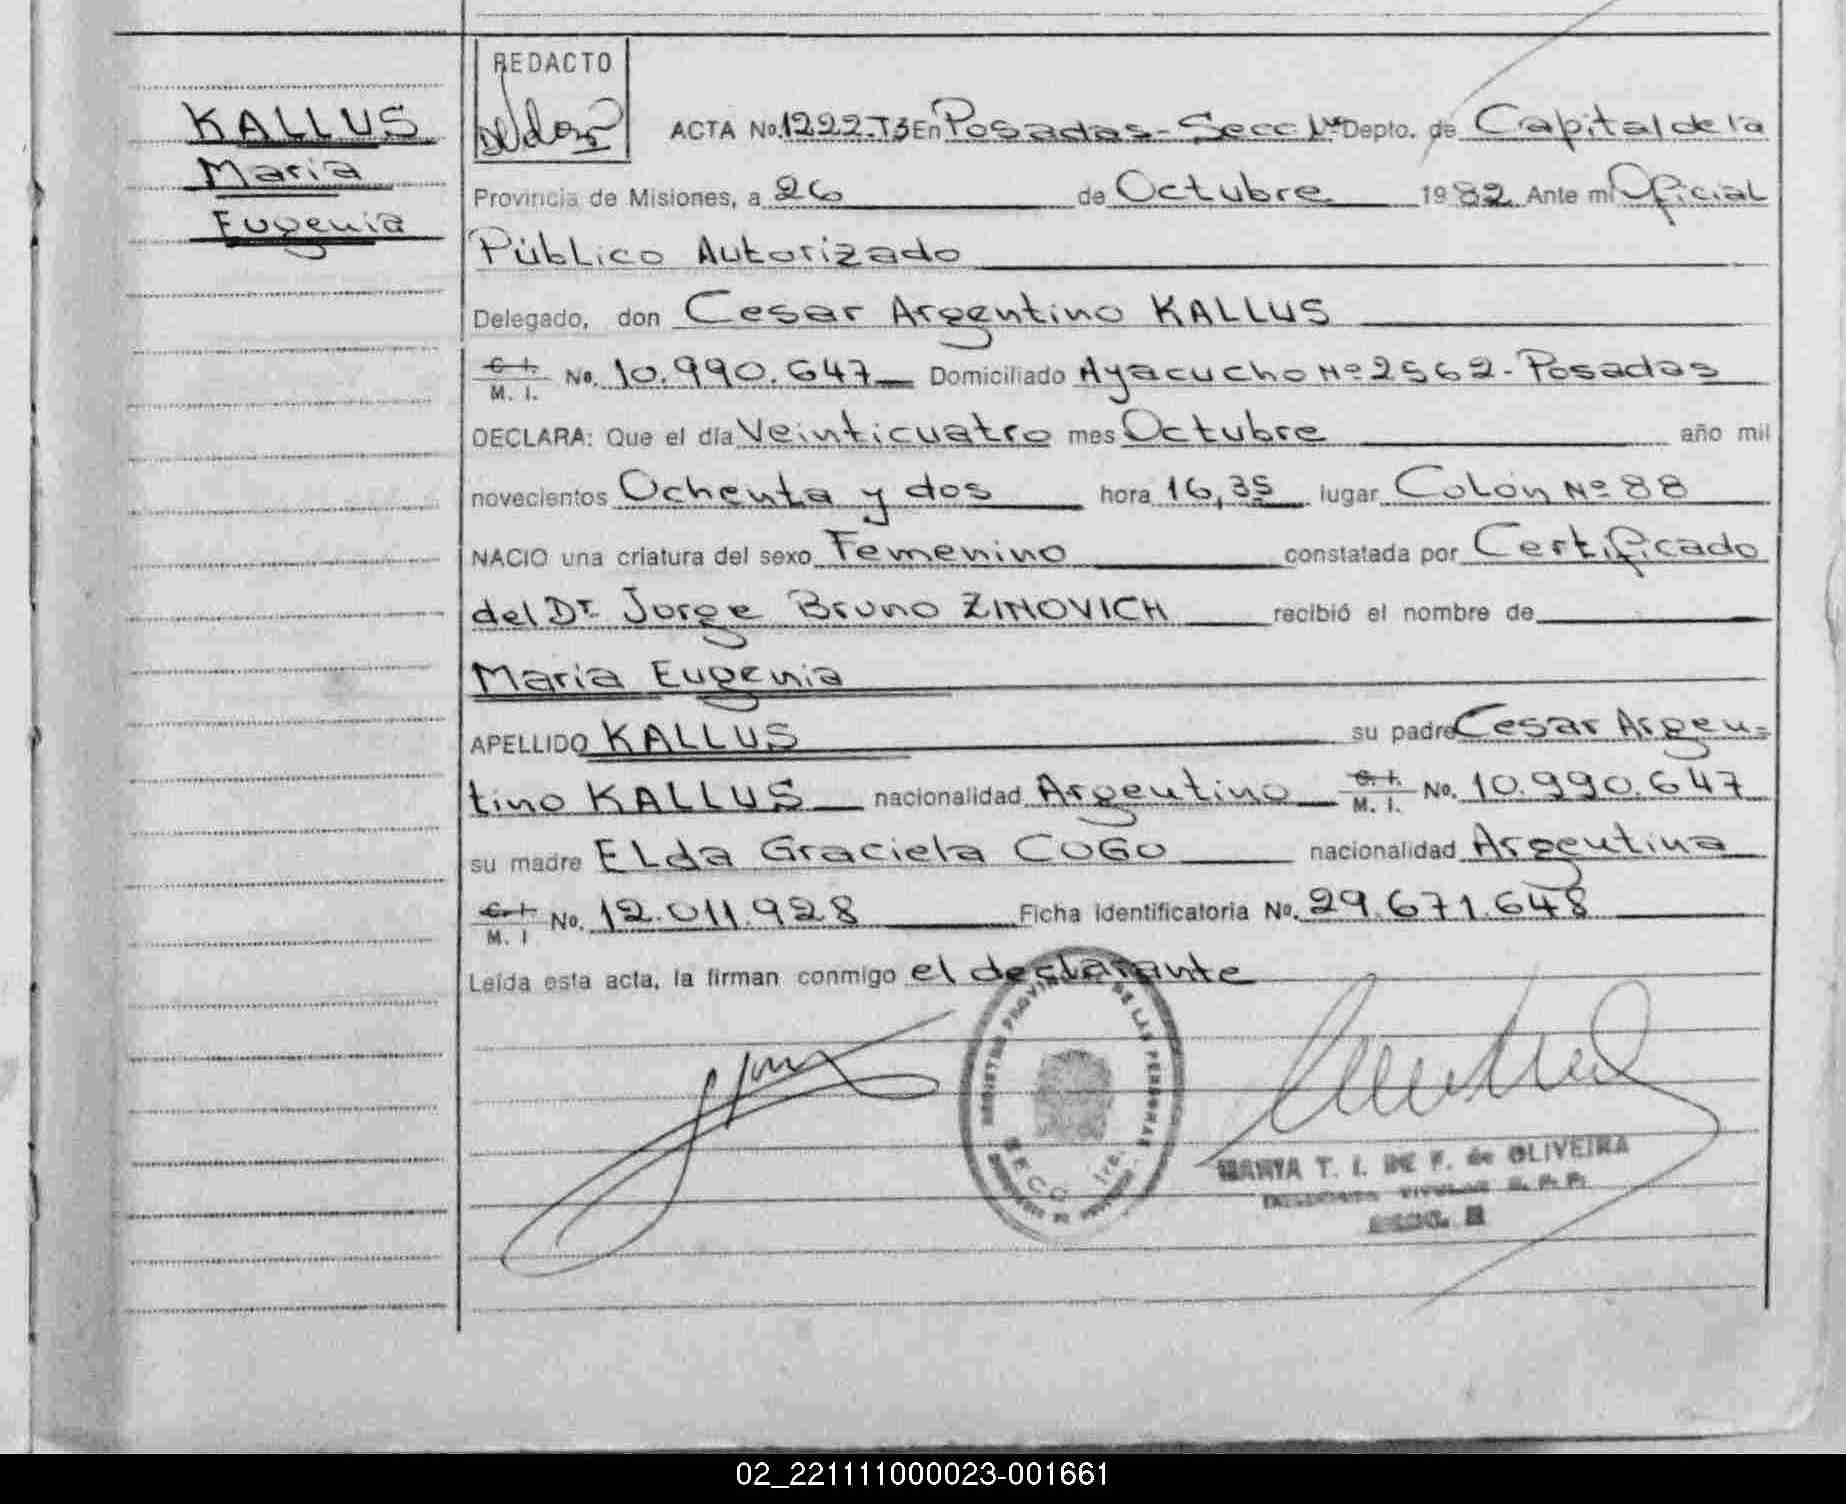 KALLUS
Maria
Eugenia
REDACTO
ACTA No. 1222-T3 En Posadas - Secc 1ra Depto. de Capital de la
Provincia de Misiones, a 26 de Octubre 1982 Ante mi Oficial
Público Autorizado
Delegado, don Cesar Argentino KALLUS
C. I. / M. I. No. 10.990.647 Domiciliado Ayacucho Nº 2562 - Posadas
DECLARA: Que el día Veinticuatro mes Octubre año mil
novecientos Ochenta y dos hora 16,35 lugar Colón Nº 88
NACIO una criatura del sexo Femenino constatada por Certificado
del Dr. Jorge Bruno ZINOVICH recibió el nombre de
Maria Eugenia
APELLIDO KALLUS su padre Cesar Argen=
tino KALLUS nacionalidad Argentino C. I. / M. I. No. 10.990.647
su madre Elda Graciela COGO nacionalidad Argentina
C. I. / M. I No. 12.011.928 Ficha identificatoria No. 29.671.648
Leída esta acta, la firman conmigo el declarante
REGISTRO PROVINCIAL DE LAS PERSONAS
SECC. 1ra.
MARIA T. I. DE F. de OLIVEIRA
02_221111000023-001661